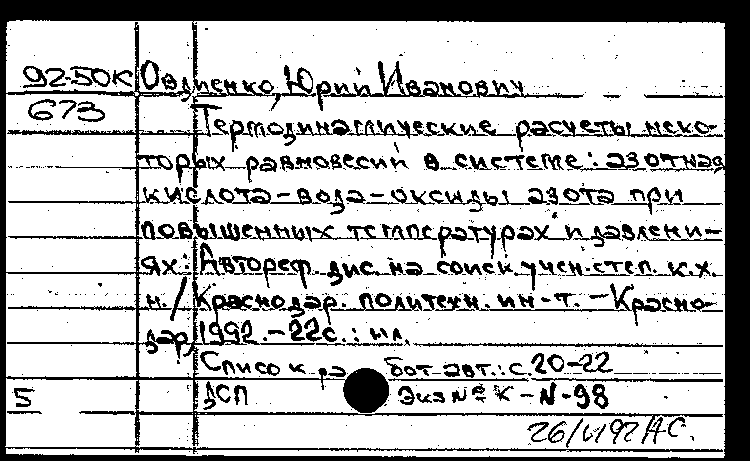 92-50К Овдиенко, Юрий Иванович
673
Термодинамические расчеты неко-
торых равновесий в системе: азотная
кислота-вода-оксиды азота при
повышенных температурах и давлени-
ях: Автореф. дис. на соиск. учен. степ. к.х.
н. / Краснодар. политехн. ин-т. - Красно-
дар, 1992. - 22с.: ил.
Список работ авт.: с. 20-22
5 ДСП Экз № К-N-98
26/VI 92 АС.